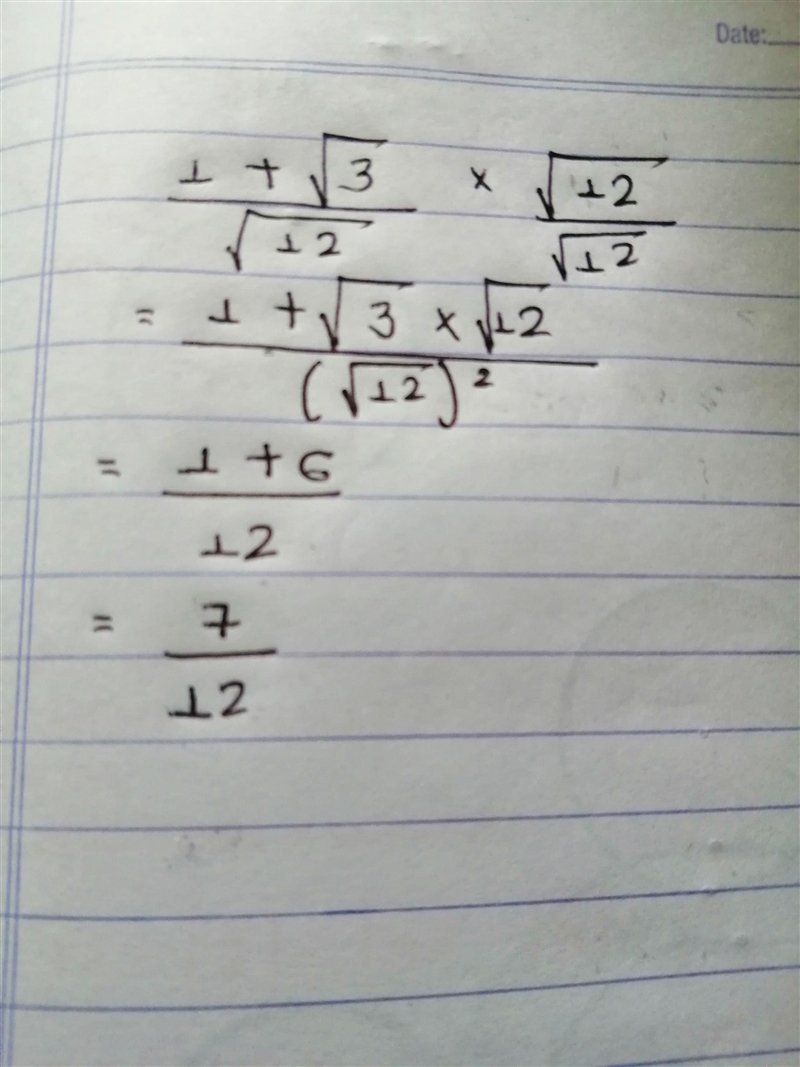 Date:
(1 + √3) / √12 × √12 / √12
= (1 + √3 × √12) / (√12)²
= (1 + 6) / 12
= 7 / 12